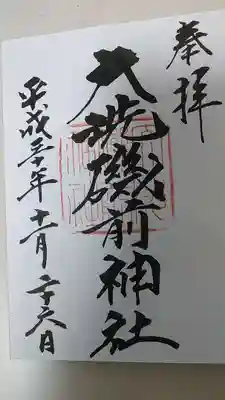 奉拝
大洗磯前神社
平成三十年十一月二十六日